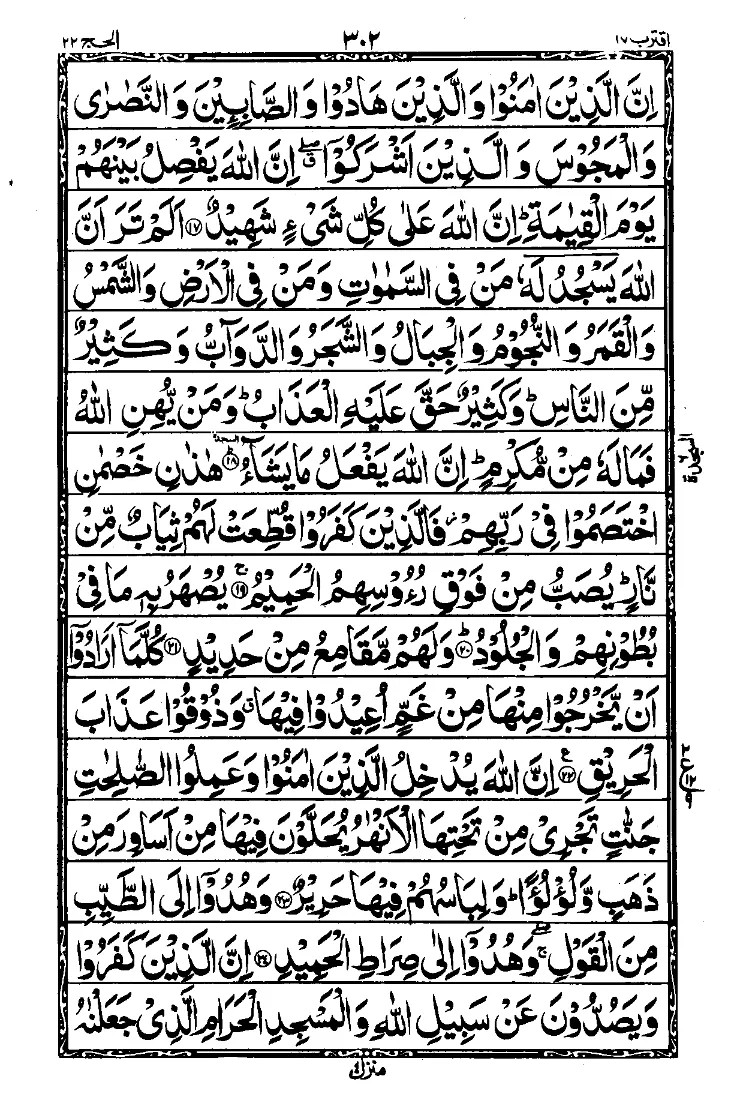 اقترب ١٧ ٣٠٢ الحج ٢٢
اِنَّ الَّذِيْنَ اٰمَنُوْا وَالَّذِيْنَ هَادُوْا وَالصَّابِـِٕيْنَ وَالنَّصٰرٰى
وَالْمَجُوْسَ وَالَّذِيْنَ اَشْرَكُوْۤا ۖۗ اِنَّ اللّٰهَ يَفْصِلُ بَيْنَهُمْ
يَوْمَ الْقِيٰمَةِ ؕ اِنَّ اللّٰهَ عَلٰى كُلِّ شَیْءٍ شَهِيْدٌ ١٧ اَلَمْ تَرَ اَنَّ
اللّٰهَ يَسْجُدُ لَهٗ مَنْ فِی السَّمٰوٰتِ وَمَنْ فِی الْاَرْضِ وَالشَّمْسُ
وَالْقَمَرُ وَالنُّجُوْمُ وَالْجِبَالُ وَالشَّجَرُ وَالدَّوَآبُّ وَكَثِيْرٌ
مِّنَ النَّاسِ ؕ وَكَثِيْرٌ حَقَّ عَلَيْهِ الْعَذَابُ ؕ وَمَنْ يُّهِنِ اللّٰهُ
فَمَا لَهٗ مِنْ مُّكْرِمٍ ؕ اِنَّ اللّٰهَ يَفْعَلُ مَا يَشَآءُ ؕ ١٨ هٰذٰنِ خَصْمٰنِ
السجدة ٦
اخْتَصَمُوْا فِیْ رَبِّهِمْ ؗ فَالَّذِيْنَ كَفَرُوْا قُطِّعَتْ لَهُمْ ثِيَابٌ مِّنْ
نَّارٍ ؕ يُصَبُّ مِنْ فَوْقِ رُءُوْسِهِمُ الْحَمِيْمُ ۚ ١٩ يُصْهَرُ بِهٖ مَا فِیْ
بُطُوْنِهِمْ وَالْجُلُوْدُ ؕ ٢٠ وَلَهُمْ مَّقَامِعُ مِنْ حَدِيْدٍ ٢١ كُلَّمَاۤ اَرَادُوْۤا
اَنْ يَّخْرُجُوْا مِنْهَا مِنْ غَمٍّ اُعِيْدُوْا فِيْهَا ۗ وَذُوْقُوْا عَذَابَ
الْحَرِيْقِ ٢٢ ع اِنَّ اللّٰهَ يُدْخِلُ الَّذِيْنَ اٰمَنُوْا وَعَمِلُوا الصّٰلِحٰتِ
جَنّٰتٍ تَجْرِیْ مِنْ تَحْتِهَا الْاَنْهٰرُ يُحَلَّوْنَ فِيْهَا مِنْ اَسَاوِرَ مِنْ
ذَهَبٍ وَّلُؤْلُؤًا ؕ وَلِبَاسُهُمْ فِيْهَا حَرِيْرٌ ٢٣ وَهُدُوْۤا اِلَى الطَّيِّبِ
مِنَ الْقَوْلِ ۖۚ وَهُدُوْۤا اِلٰى صِرَاطِ الْحَمِيْدِ ٢٤ اِنَّ الَّذِيْنَ كَفَرُوْا
وَيَصُدُّوْنَ عَنْ سَبِيْلِ اللّٰهِ وَالْمَسْجِدِ الْحَرَامِ الَّذِیْ جَعَلْنٰهُ
منزل ٤